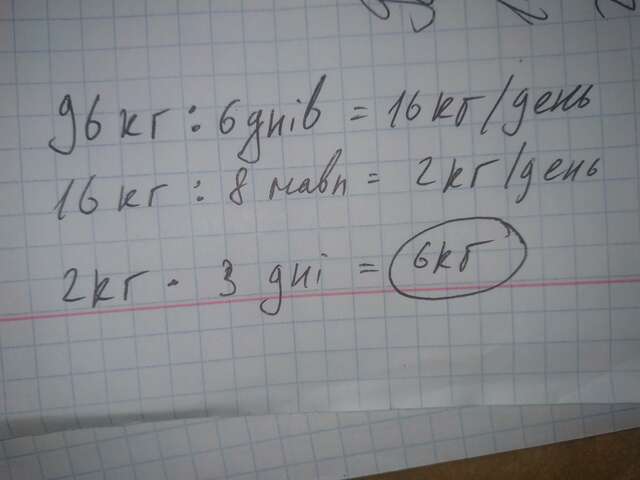 96 кг : 6 днів = 16 кг/день
16 кг : 8 мавп = 2 кг/день
2 кг · 3 дні = 6 кг